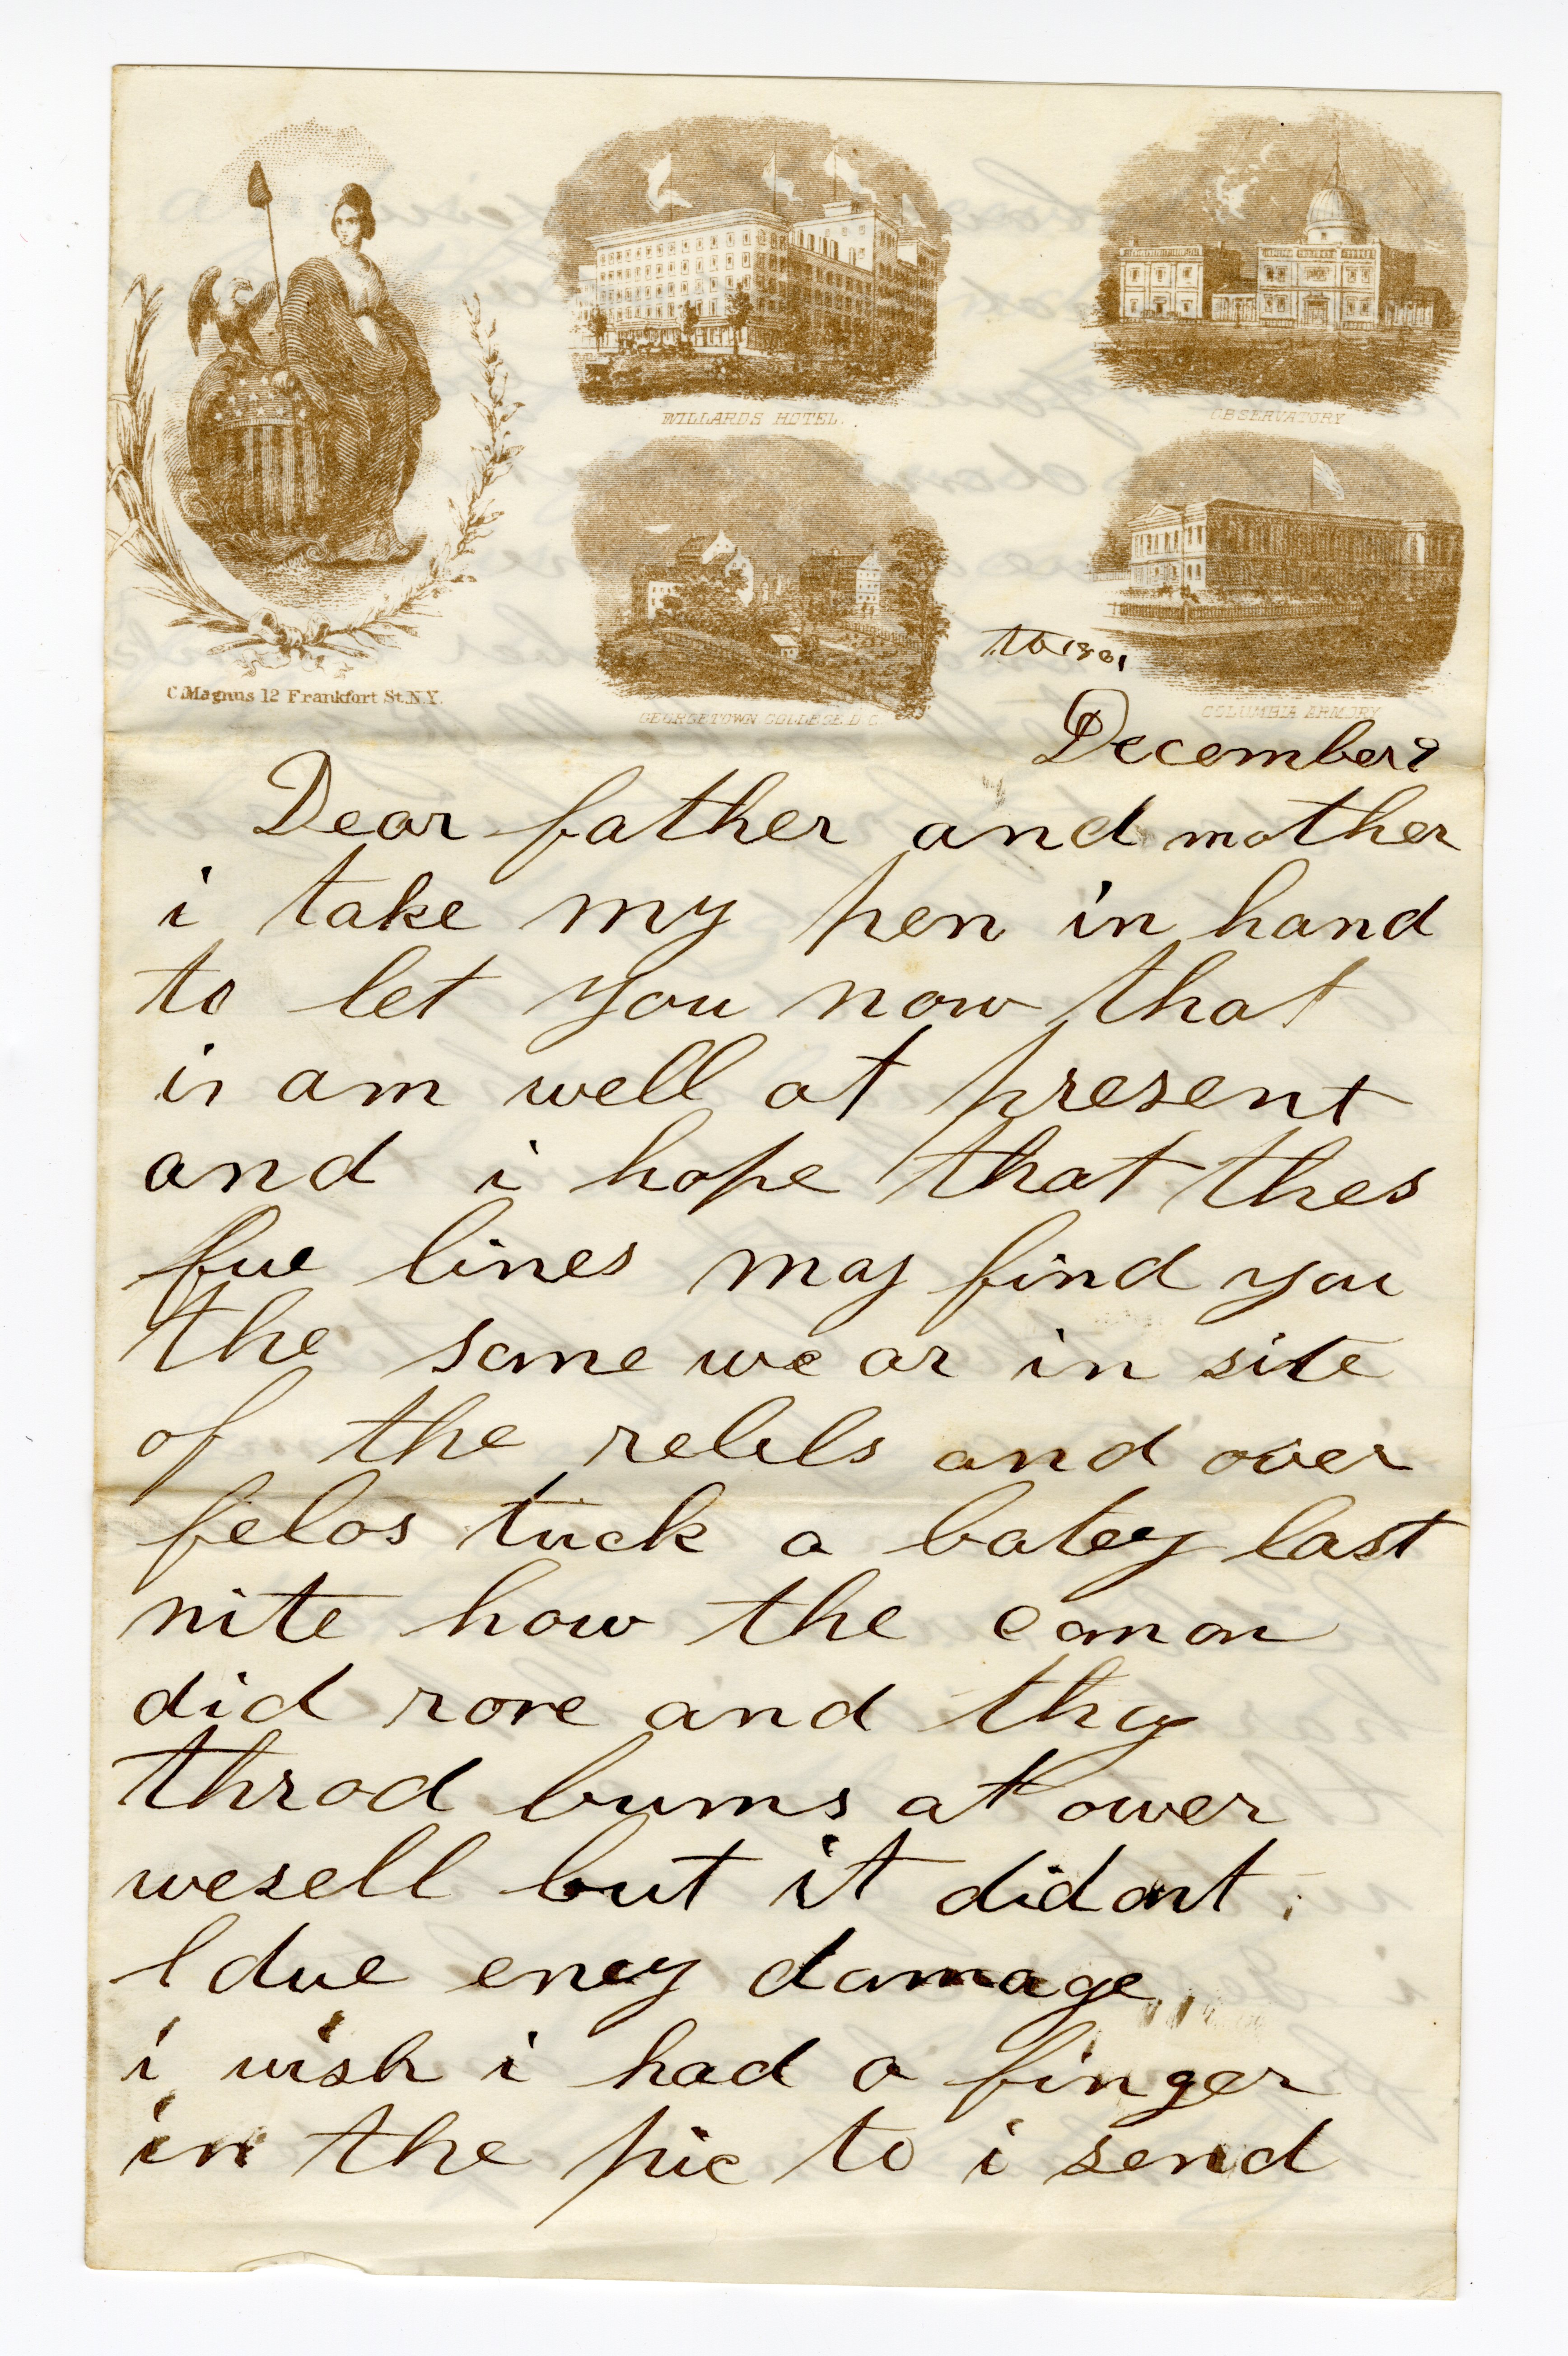 WILLARDS HOTEL.
OBSERVATORY
C. Magnus 12 Frankfort St. N.Y.
GEORGETOWN COLLEGE D.C.
COLUMBIA ARMORY
to 1861
December 9
Dear father and mother
i take my pen in hand
to let you now that
i am well at present
and i hope that thes
fue lines may find you
the same we ar in site
of the rebels and over
felos tuck a batey last
nite how the canon
did rore and thay
throd bums at ower
wesell but it didont
due eney damage
i wish i had a finger
in the pie to i send